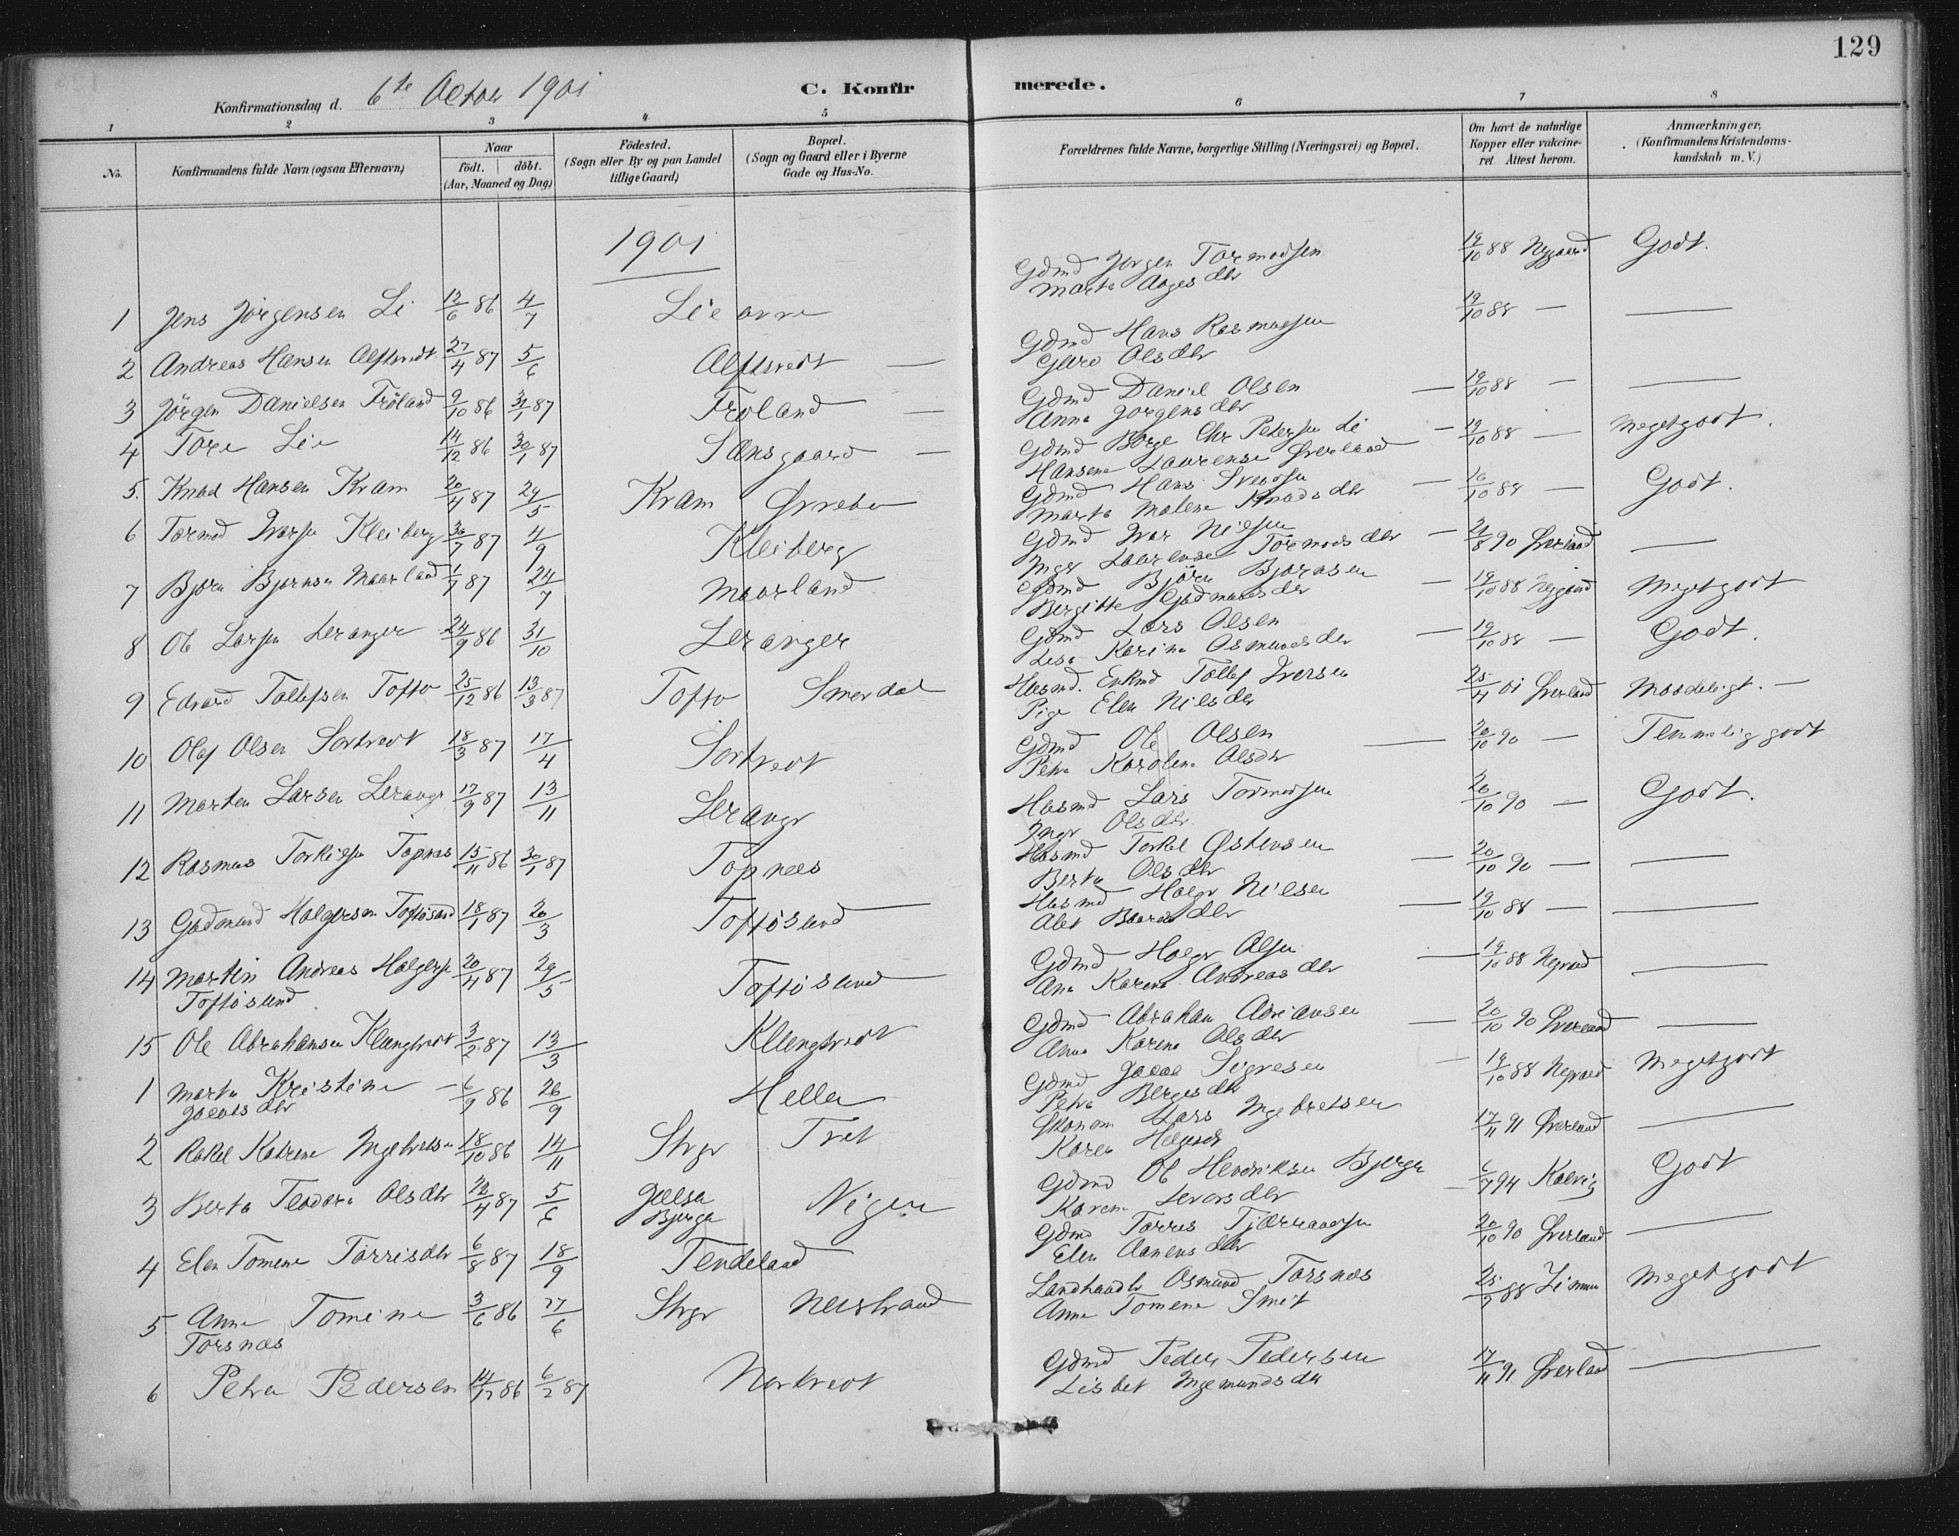 129
Konfirmationsdag d. 6te October 1901
C. Konfirmerede.
1 2 3 4 5 6 7 8
No.
Konfirmandens fulde Navn (ogsaa Efternavn)
Naar
födt. döbt.
(Aar, Maaned og Dag)
Födested.
(Sogn eller By og paa Landet
tillige Gaard)
Bopæl.
(Sogn og Gaard eller i Byerne
Gade og Hus-No.
Forældrenes fulde Navne, borgerlige Stilling (Næringsvei) og Bopæl.
Om havt de naturlige
Kopper eller vakcine-
ret. Attest herom.
Anmærkninger.
(Konfirmandens Kristendoms-
kundskab m. V.)
1901
1 Jens Jörgensen Li 12/6 86 4/7 Gdmd Jörgen Tormodsen 19/10 88 Nygaard Godt.
Marta Aagesdtr
2 Andreas Hansen 27/4 87 5/6 Gdmd Hans Rasmusen 19/10 88 —
Olsdtr
3 Jörgen Danielsen Fröland 9/10 86 31/1 87 Fröland — Gdmd Daniel Olsen — 19/10 88 —
Anna Jörgensdtr
4 Tore Lie 14/12 86 30/1 87 Sænsgaard — Gdmd Börge Chr Petersen Li — 19/10 88 — Megetgodt.
Hansena Laurense Øverland
5. Knud Hansen Kram 20/4 87 29/5 Kram Ørrebø Gdmd Hans — 10 88 — Godt.
Marta Malena Knudsdtr
6 Tormod Iversen Kleiberg 30/7 87 4/9 Kleiberg Gdmd Ivar Nilsen — 8 90 Øverland —
Inger Laurense Tormodsdtr
7 Björn Björnsen Maarland 1/7 87 24/7 Maarland Gdmd Björn Björnsen — 19/10 88 Nygaard Megetgodt
Bergitte Gudmundsdtr
8 Ole Larsen Leranger 24/9 86 31/10 Leranger Gdmd Lars Olsen — 19/10 88 — Godt.
Lisa Karina Osmundsdtr
9 Edvard Tollefsen Toftö 25/12 86 13/3 87 Toftö Smørdal Husmd. Enkmd Tollef Iversen 25/4 01 Øverland Maadeligt. —
Pige Elen Nilsdtr
10 Olaf Olsen Sortvedt 18/3 87 17/4 Sortvedt Gdmd Ole Olsen — 20/10 90 — Temmelig godt
Petra Karolina Olsdtr
11 Morten Larsen Leranger 17/9 87 13/11 Leranger Husmd Lars Tormodsen 20/10 90 — Godt.
Inger Olsdtr.
12 Rasmus Torkilsen Topnæs 15/11 86 30/1 87 Topnæs Husmd Torkel Østensen — 20/10 90 — —
Berta Olsdtr
13 Gudmund Holgersen Toftösund 18/1 87 20/3 Toftösund — Husmd Holger Nilsen — 19/10 88 — —
Baardsdtr
14 Martin Andreas Holgersen 20/4 87 29/5 Toftösund — Gdmd Holger Olsen — 19/10 88 Nygaard —
Toftösund Ane Karena Andreasdtr
15 Ole Abrahamsen Klungtvedt 3/2 87 13/3 Klungtvedt Gdmd Abraham Adriansen — 20/10 90 Øverland —
Anna Karena Olsdtr
1 Marta Kristine — 86 26/9 Helle Gdmd Jacob Sigvesen — 19/10 88 Nygaard Megetgodt
Jacobsdtr Petra Bergesdtr
2 Rakel Katrine Ingebretsen 18/10 86 14/11 Stvgr Tvet Skomm Lars Ingebretsen 17/11 91 Øverland —
Karen
3 Berta Teodora Olsdtr 12/4 87 5/6 Jælsa Nigen Gdmd Ole Hendriksen Bjerga — 94 Godt
Bjerga Karen Levorsdtr
4 Elen Tomine Torrisdtr 6/8 87 18/9 Tendeland Gdmd Torris 20/10 90 Øverland —
Elen Aanensdtr
5 Anne Tomine 3/6 86 27/6 Stvgr Nestrand Landhandler Osmund Torsnæs 25 88 Megetgodt
Torsnæs Anna Tomene Smit
6 Petra Pedersen 14/12 86 6/2 87 Nortvedt Gdmd Peder Pedersen 17/11 91 Øverland —
Lisbet Ingemundsdtr